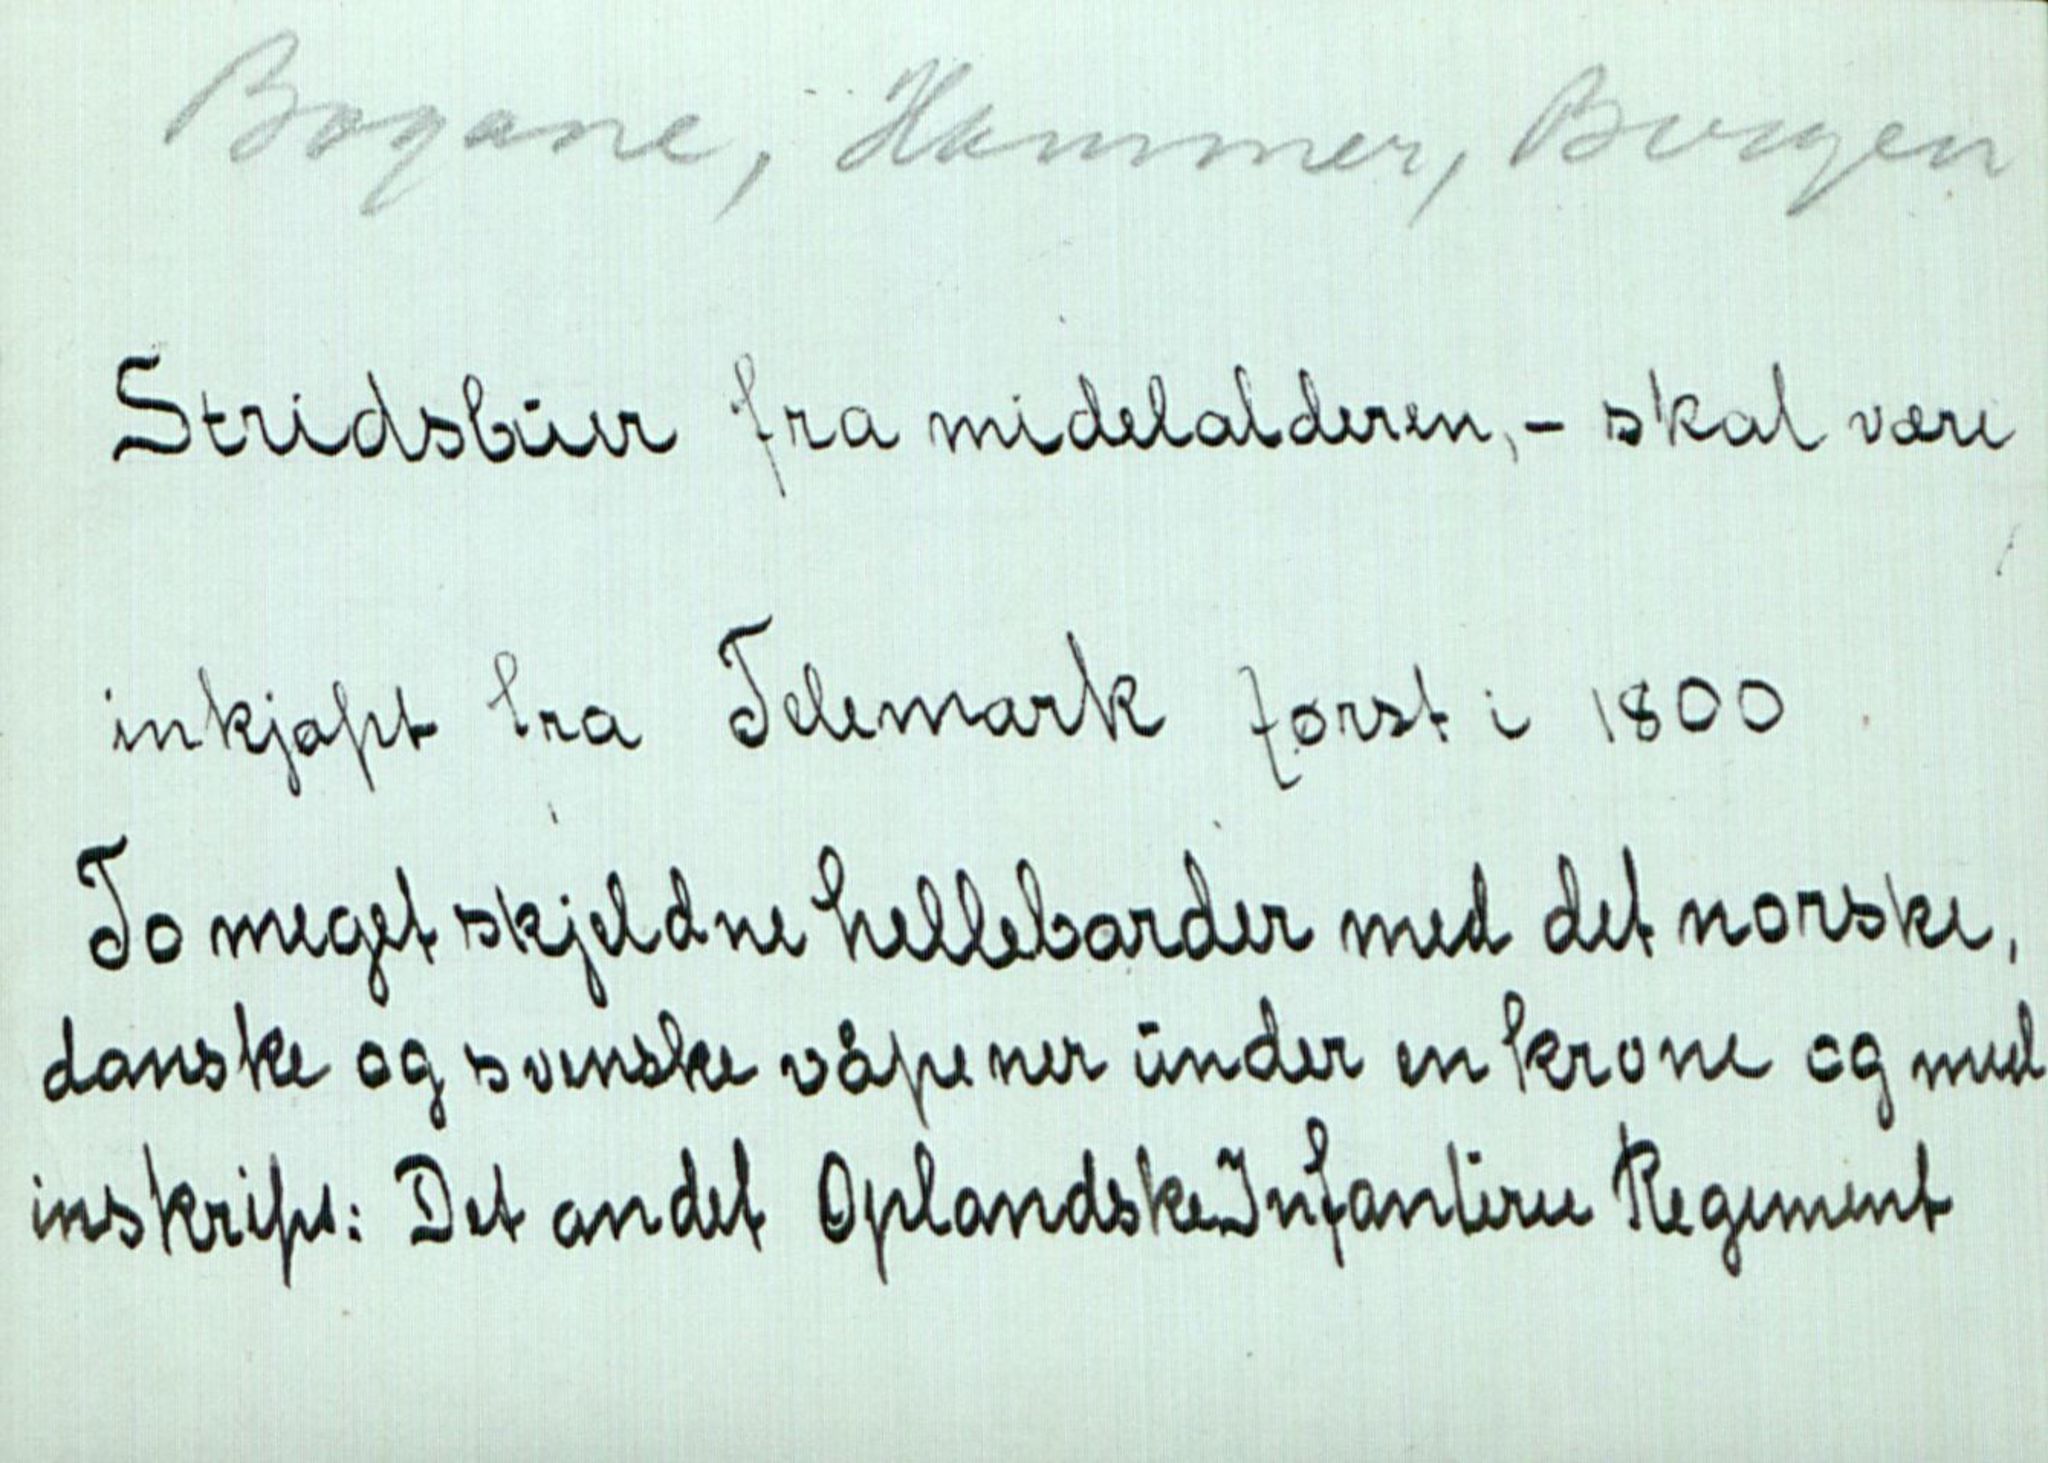 Bogane, Hammer, Burgen
Stridsbuer fra midelalderen,- skal være
inkjøpt fra Telemark først i 1800
To meget skjeldne hellebarder med det norske,
danske og svenske våpener under en krone og med
inskript: Det andet Oplandske Infanterie Regement